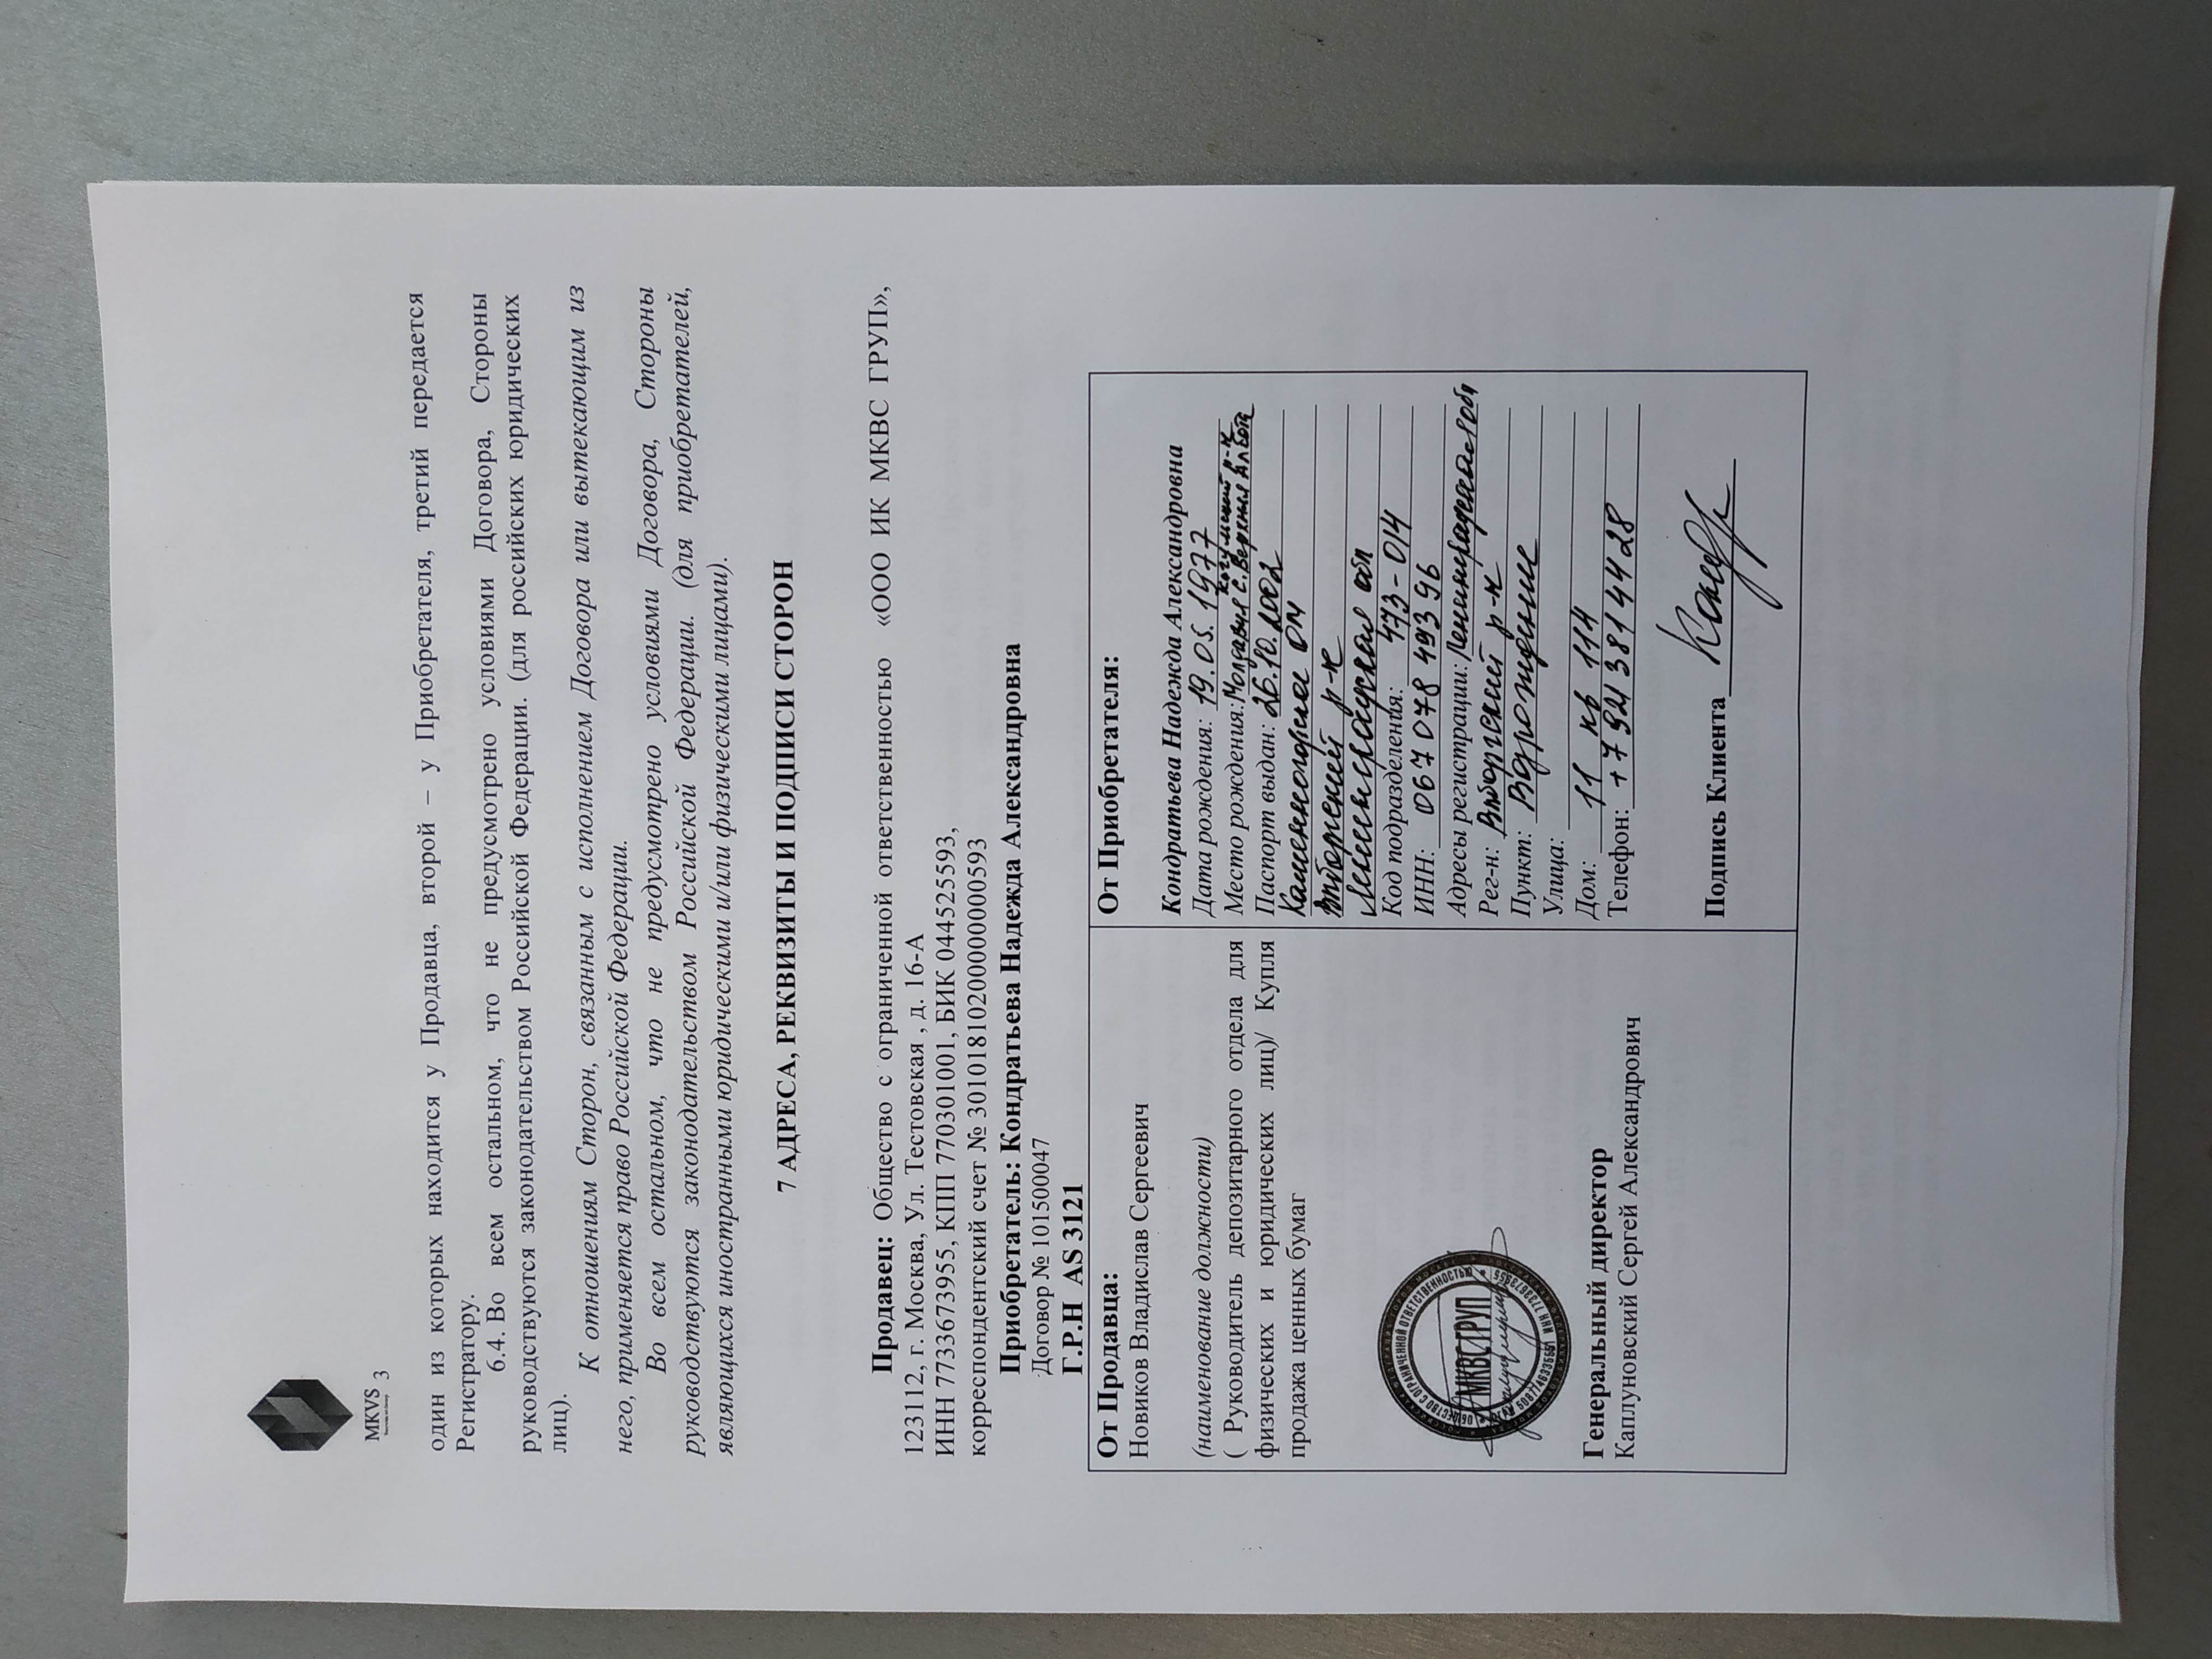 MKVS 3
один из которых находится у Продавца, второй – у Приобретателя, третий передается
Регистратору.
6.4. Во всем остальном, что не предусмотрено условиями Договора, Стороны
руководствуются законодательством Российской Федерации. (для российских юридических
лиц).
К отношениям Сторон, связанным с исполнением Договора или вытекающим из
него, применяется право Российской Федерации.
Во всем остальном, что не предусмотрено условиями Договора, Стороны
руководствуются законодательством Российской Федерации. (для приобретателей,
являющихся иностранными юридическими и/или физическими лицами).
7 АДРЕСА, РЕКВИЗИТЫ И ПОДПИСИ СТОРОН
Продавец: Общество с ограниченной ответственностью «ООО ИК МКВС ГРУП»,
123112, г. Москва, Ул. Тестовская , д. 16-А
ИНН 7733673955, КПП 770301001, БИК 044525593,
корреспондентский счет № 30101810200000000593
Приобретатель: Кондратьева Надежда Александровна
Договор № 101500047
Г.Р.Н AS 3121
От Продавца:
Новиков Владислав Сергеевич
(наименование должности)
( Руководитель депозитарного отдела для
физических и юридических лиц)/ Купля
продажа ценных бумаг
ОБЩЕСТВО С ОГРАНИЧЕННОЙ ОТВЕТСТВЕННОСТЬЮ
МКВС ГРУП
ИНН 7733673955
Генеральный директор
Каплуновский Сергей Александрович
От Приобретателя:
Кондратьева Надежда Александровна
Дата рождения: 19.05.1977
Место рождения: Молдавия с. Верхняя
Паспорт выдан: 26.10.2002
Каменногорск ОМ
Выборгский р-н
Ленинградская обл
Код подразделения: 473-014
ИНН: 067 078 493 96
Адреса регистрации: Ленинградская обл
Рег-н: Выборгский р-н
Пункт: Возрождение
Улица:
Дом: 11 кв 114
Телефон: +7 921 381 44 28
Подпись Клиента